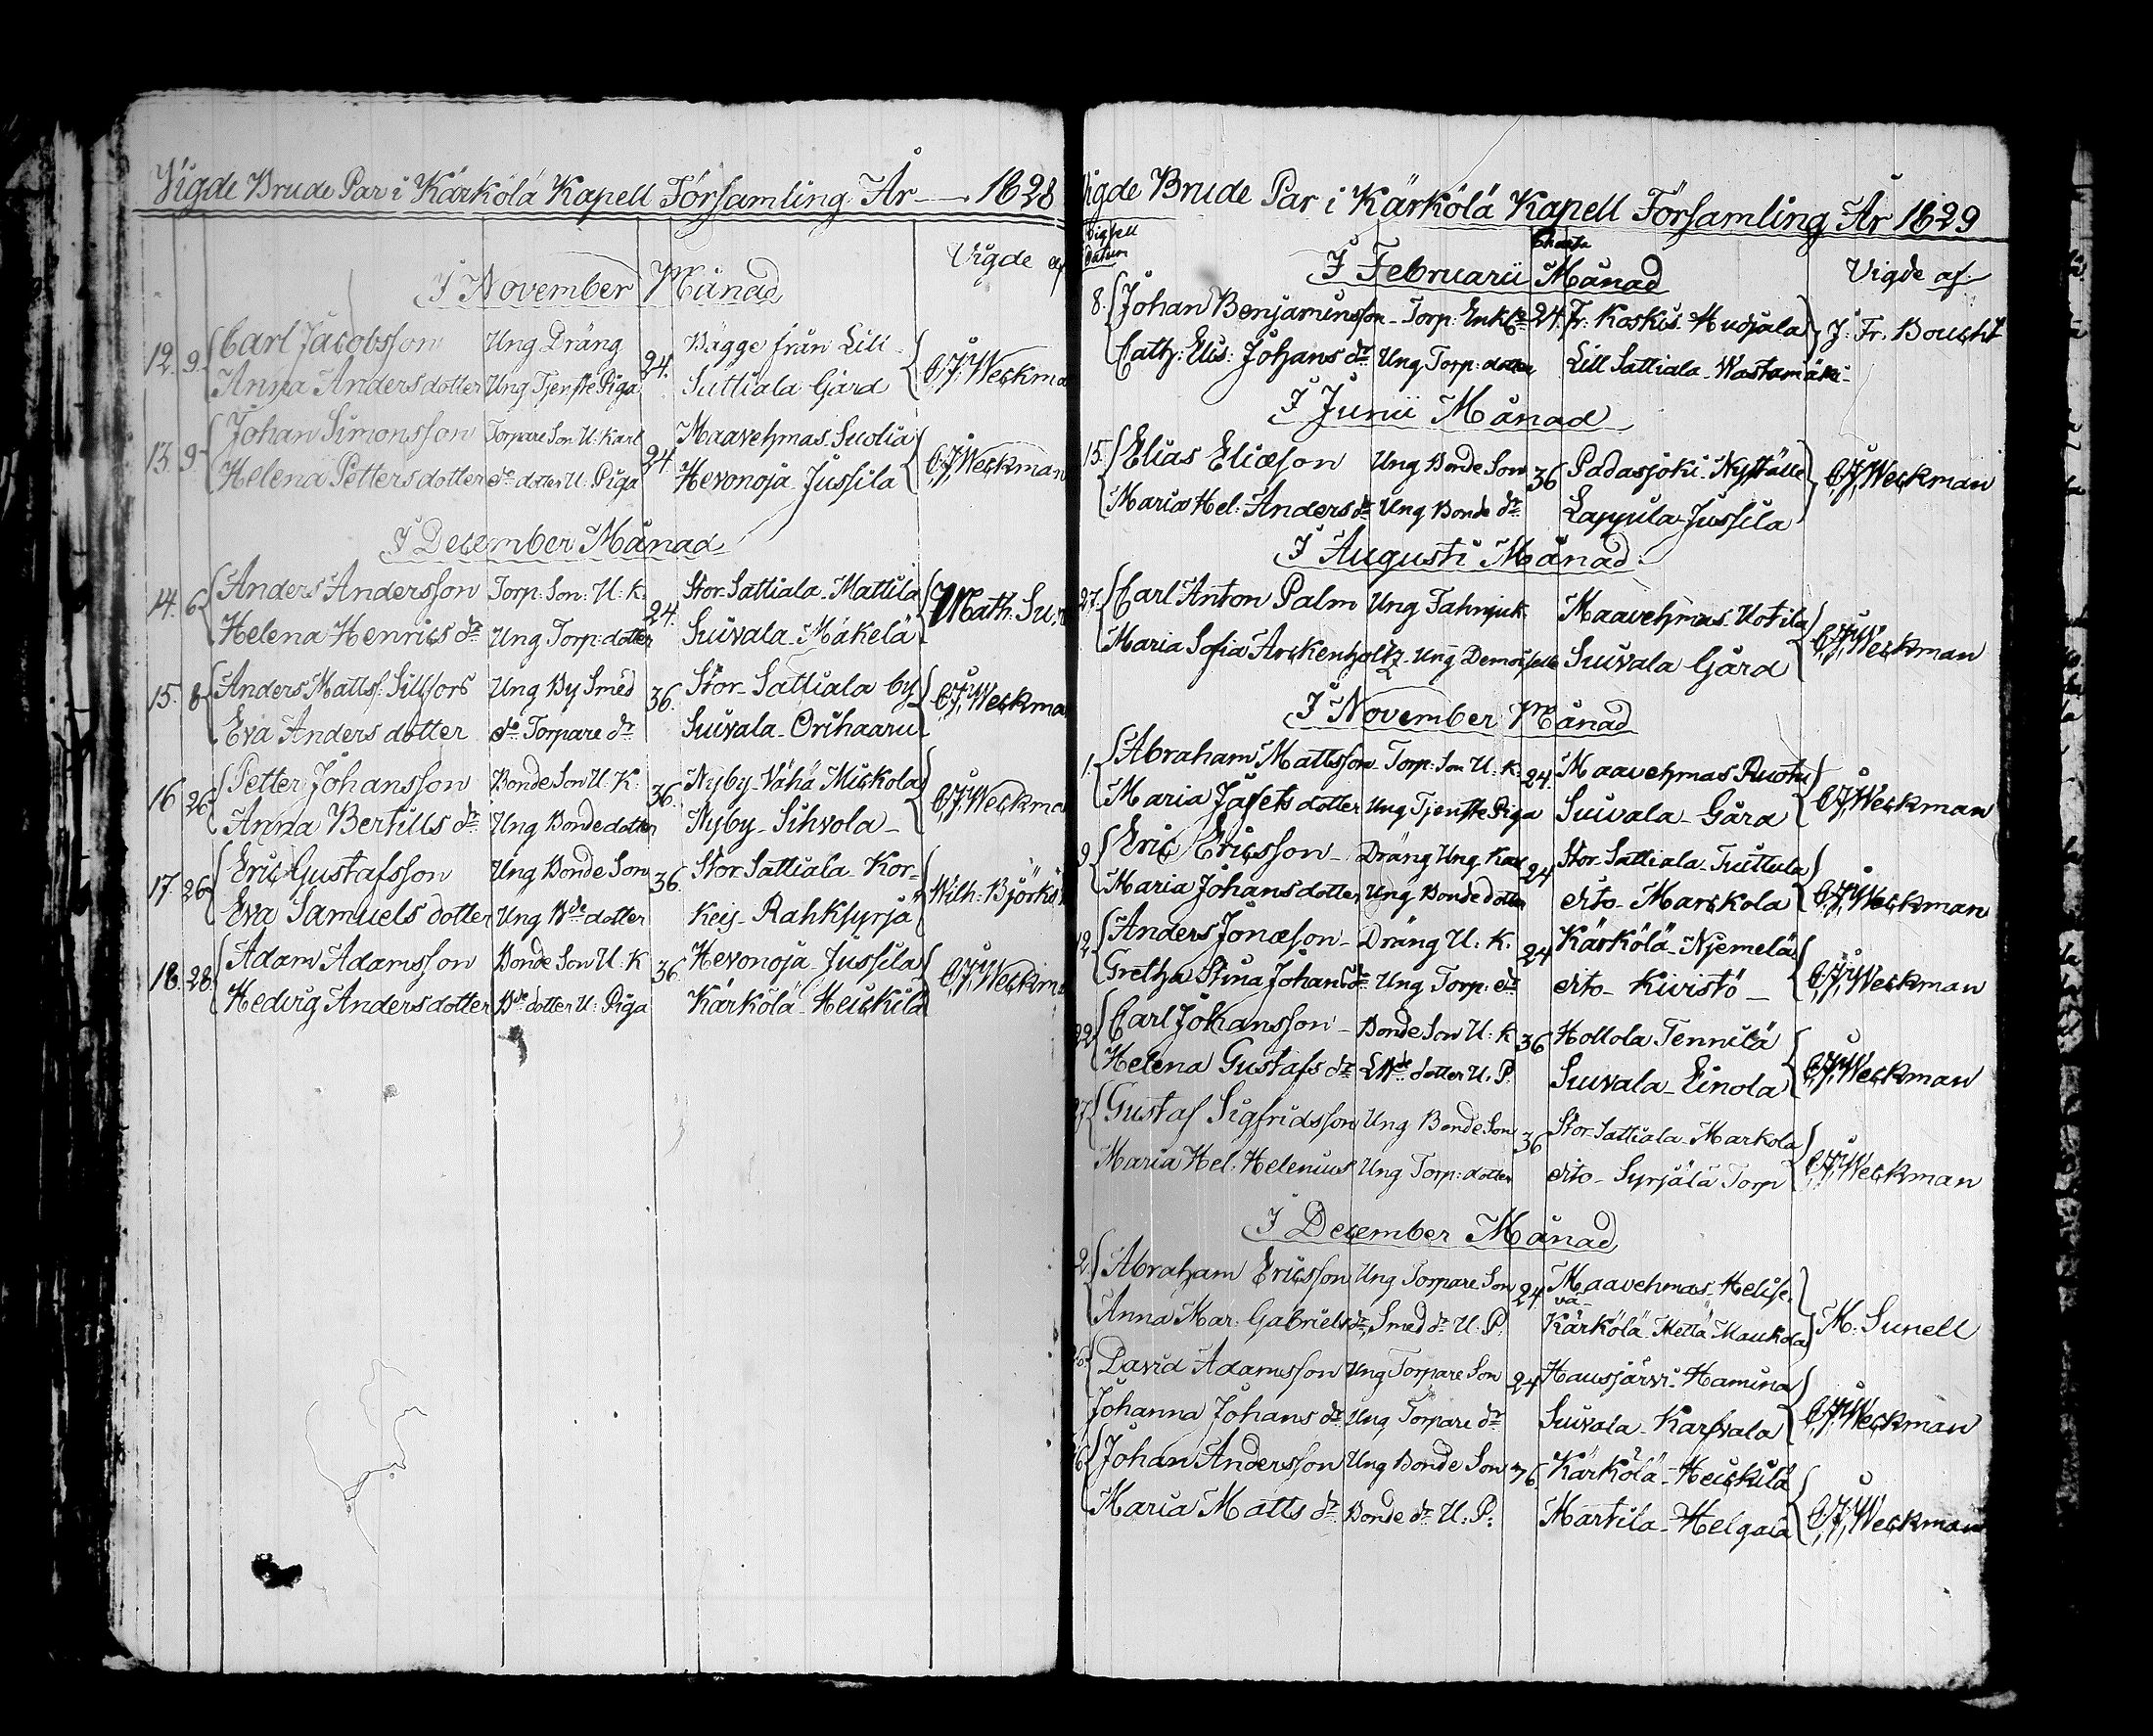 Vigde Brude Par i Kärkölä Kapell Församling År — 1828
Vigde af
I November Månad
12. 9. Carl Jacobsson Ung Dräng 24. Bägge från Lill
Anna Anders dotter Ung Tjenste Piga Sattiala Gård C. J. Weckman
13. 9. Johan Simonsson Torpare Son U: Karl 24. Maavehmas Suolia
Helena Petters dotter do dotter U: Piga Hevonoja Jussila C. J. Weckman
I December Månad
14. 6. Anders Andersson Torp: Son: U: K. 24. Stor Sattiala Mattila Math: Su
Helena Henrics dr Ung Torp: dotter Suvala Mäkelä
15. 8. Anders Matts: Sillfors Ung By Smed 36. Stor Sattiala by C. J. Weckma
Eva Anders dotter do Torpare dr Suvala Orihaaru
16 26 Petter Johansson Bonde Son U: K: 36. Nyby Vähä Mickola C. J. Weckma
Anna Bertills dr Ung Bonde dotter Nyby Sihvola
17. 26 Eric Gustafsson Ung Bonde Son 36. Stor Sattiala Kor- Wilh: Björk
Eva Samuels dotter Ung Bde dotter keis Rahksyrjä
18. 28. Adam Adamsson Bonde Son U: K 36. Hevonoja Jussila C. J. Weckm
Hedvig Anders dotter Bde dotter U: Piga Kärkölä Heickilä
Vigde Brude Par i Kärkölä Kapell Församling År 1829
Datum
I Februarii Månad Vigde af
8. Johan Benjaminsson Torp: Enkl: 24. Fr: Koskis Hudjala J: Fr: Boucht
Cath: Elis: Johans dr Ung Torp: dotter Lill Sattiala Wastamäki
I Junii Månad
15. Elias Eliæson Ung Bonde Son 36 Padasjoki Nyställe C. J. Weckman
Maria Hel: Anders dr Ung Bonde dr Lappila Jussila
I Augusti Månad
27. Carl Anton Palm Ung Fahnjuk. Maavehmas Uotila C. J. Weckman
Maria Sofia Arckenholtz Ung Demoiselle Suvala Gård
I November Månad
1. Abraham Mattsson Torp: Son U: K: 24. Maavehmas Ruotu C. J. Weckman
Maria Jafets dotter Ung Tjenste Piga Suvala Gård
9. Eric Ericsson Dräng Ung Karl 24 Stor Sattiala Tuttula C. J. Weckman
Maria Johans dotter Ung Bonde dotter dito Marckola
12. Anders Jonæson Dräng U: K. 24 Kärkölä Njemelä C. J. Weckman
Gretha Stina Johans dr Ung Torp: dr dito Kivistö
22 Carl Johansson Bonde Son U: K 36 Hollola Tennilä C. J. Weckman
Helena Gustafs dr Bde dotter U. P. Suvala Einola
27 Gustaf Sigfridsson Ung Bonde Son 36 Stor Sattiala Markola C. J. Weckman
Maria Hel: Helenius Ung Torp: dotter dito Syrjälä Torp
I December Månad
2. Abraham Ericsson Ung Torpare Son 24 Maavehmas Helise-
va M: Sunell
Anna Mar: Gabriels dr Smed dr U. P. Kärkölä Mettä Maukola
David Adamsson Ung Torpare Son 24 Hausjärvi Hamina C. J. Weckman
Johanna Johans dr Ung Torpare dr Suvala Karsvala
Johan Andersson Ung Bonde Son 36. Kärkölä Heickilä C. J. Weckman
Maria Matts dr Bonde dr U: P: Martila Helgala